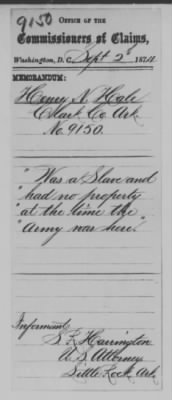 9150
OFFICE OF THE
Commissioners of Claims,
Washington, D.C., Sept 2d 1874.
MEMORANDUM:
Henry N. Hale
Clark Co Ark
No. 9150.
"Was a Slave and
"had no property
"at the time the"
"Army was here."
Informant
S. R. Harrington
U.S. Attorney
Little Rock Ark